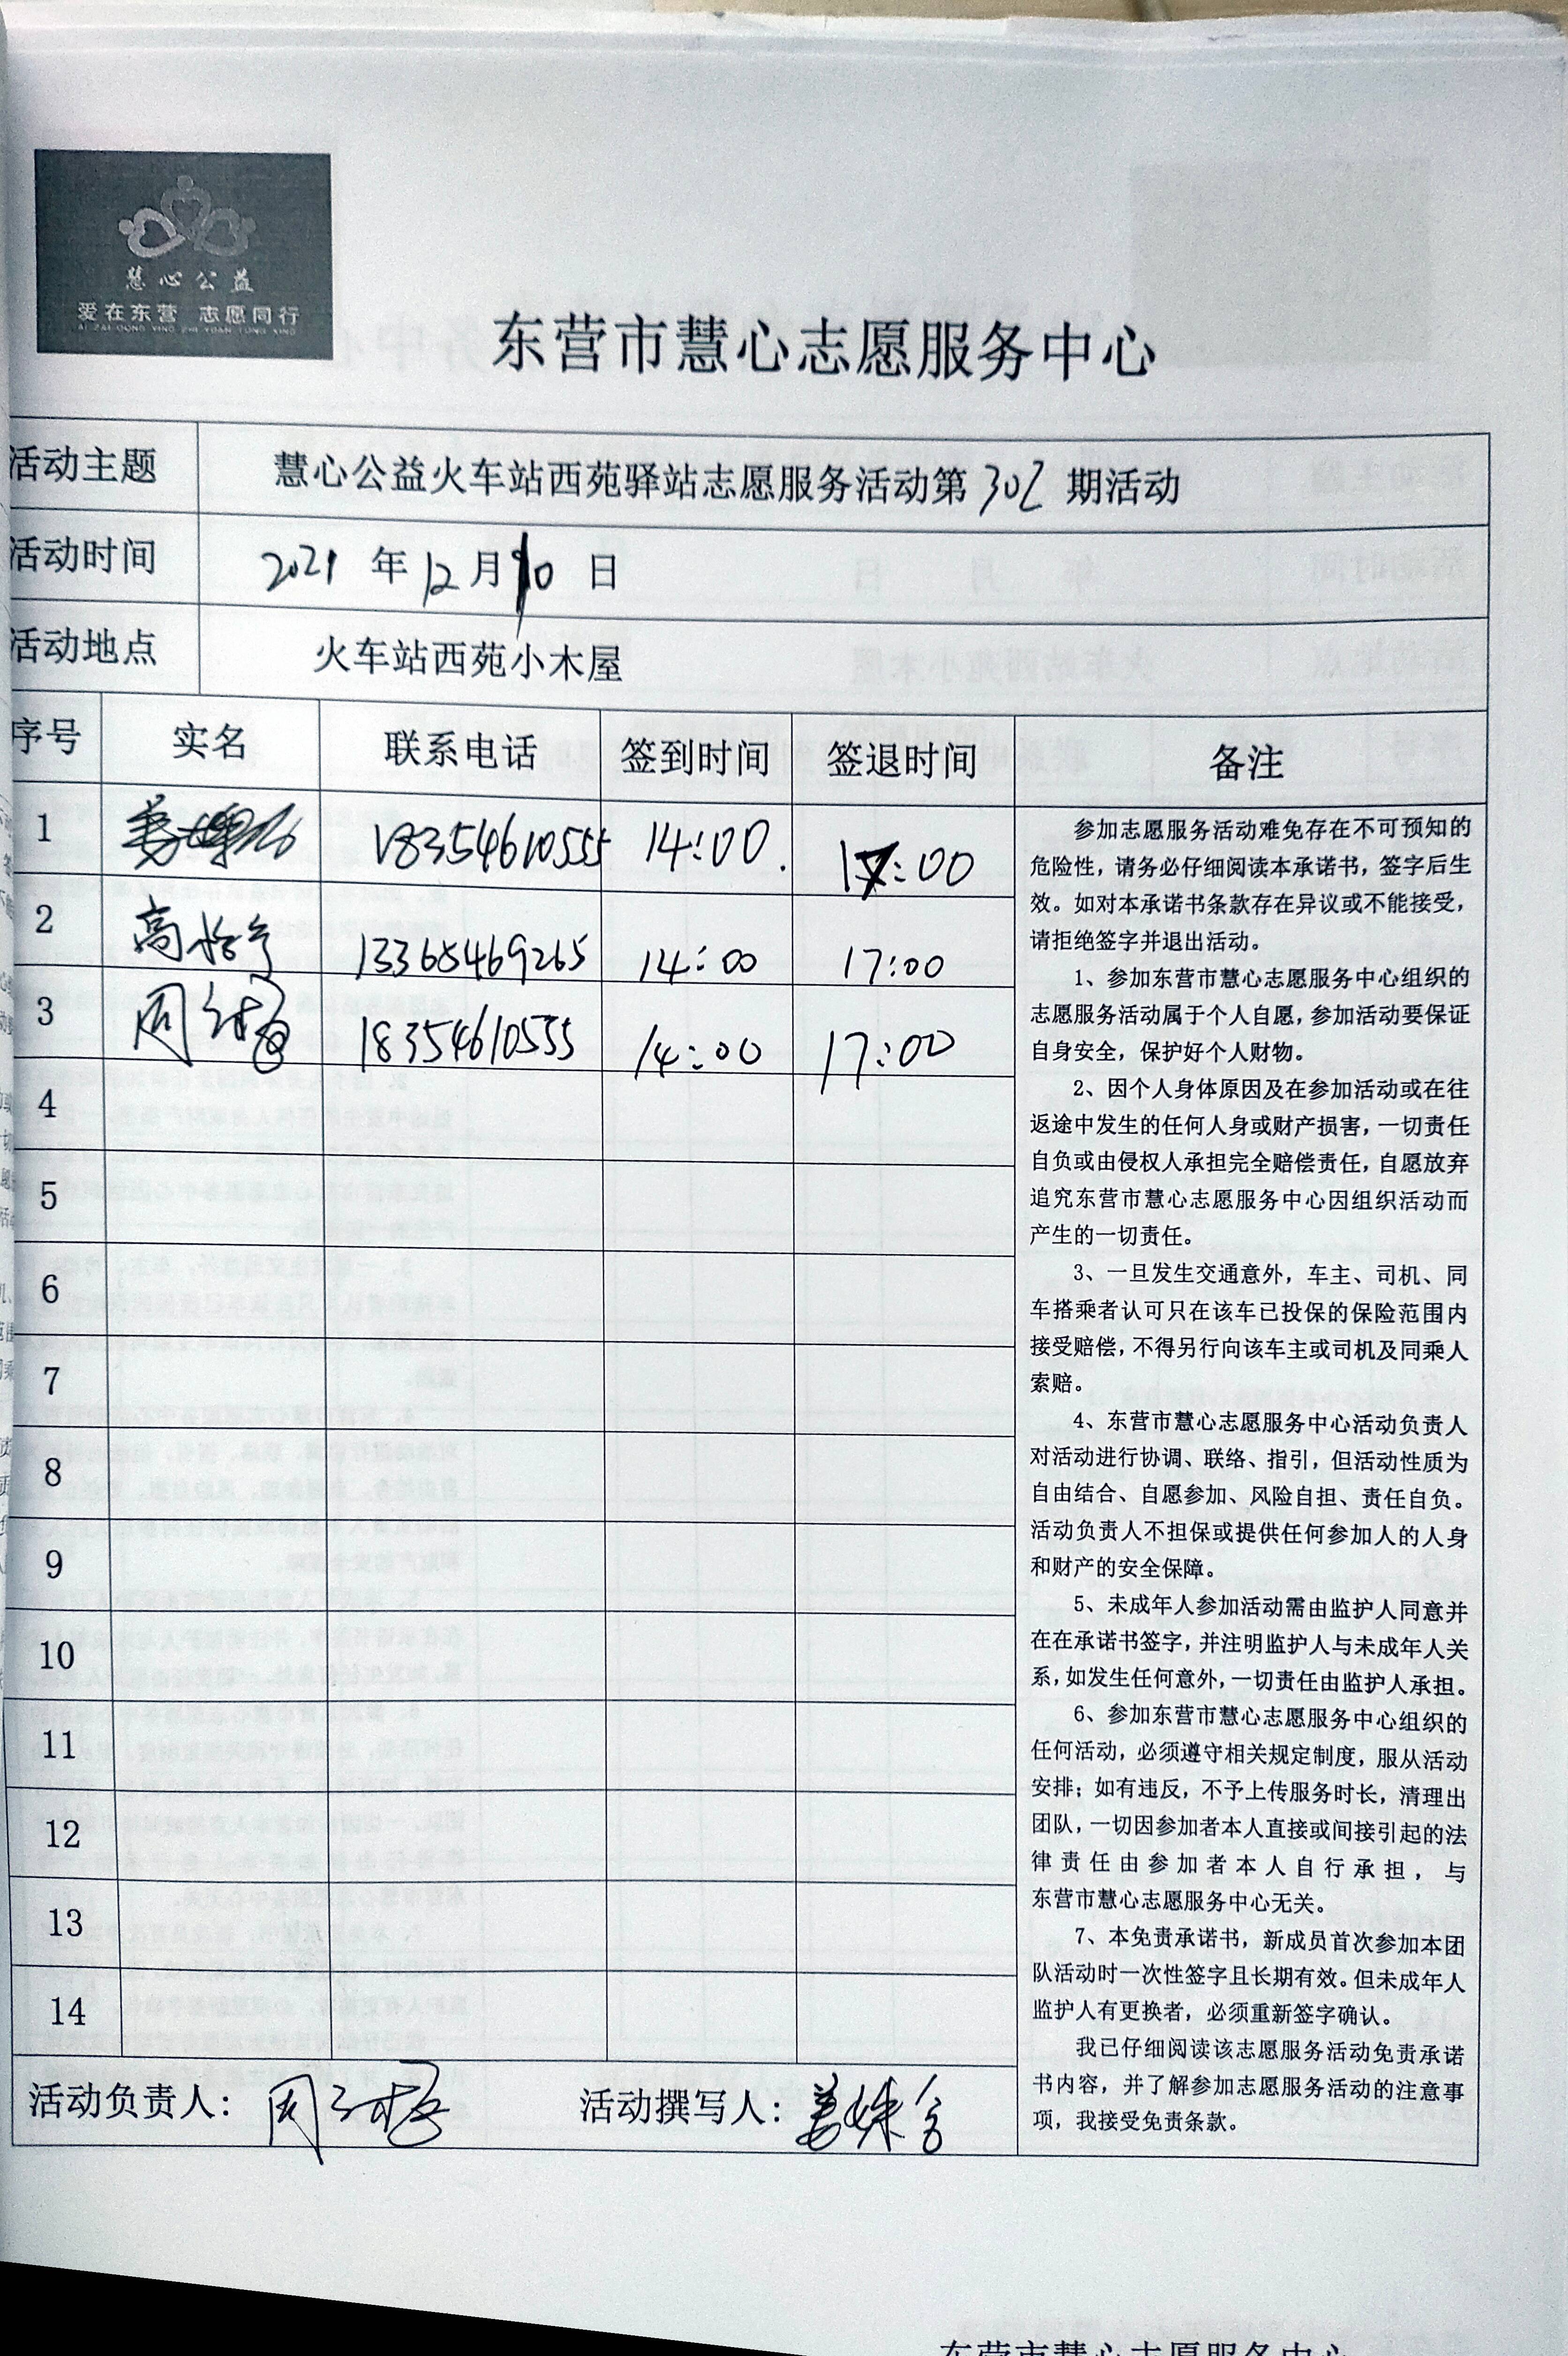 慧心公益
爱在东营 志愿同行
AI ZAI DONG YING ZHI YUAN TONG XING
东营市慧心志愿服务中心
活动主题 慧心公益火车站西苑驿站志愿服务活动第302期活动
活动时间 2021年12月10日
活动地点 火车站西苑小木屋
序号 实名 联系电话 签到时间 签退时间 备注
1 18354610555 14:00. 17:00
2 高 13365469265 14:00 17:00
3 周 18354610555 14:00 17:00
4
5
6
7
8
9
10
11
12
13
14
参加志愿服务活动难免存在不可预知的
危险性，请务必仔细阅读本承诺书，签字后生
效。如对本承诺书条款存在异议或不能接受，
请拒绝签字并退出活动。
1、参加东营市慧心志愿服务中心组织的
志愿服务活动属于个人自愿，参加活动要保证
自身安全，保护好个人财物。
2、因个人身体原因及在参加活动或在往
返途中发生的任何人身或财产损害，一切责任
自负或由侵权人承担完全赔偿责任，自愿放弃
追究东营市慧心志愿服务中心因组织活动而
产生的一切责任。
3、一旦发生交通意外，车主、司机、同
车搭乘者认可只在该车已投保的保险范围内
接受赔偿，不得另行向该车主或司机及同乘人
索赔。
4、东营市慧心志愿服务中心活动负责人
对活动进行协调、联络、指引，但活动性质为
自由结合、自愿参加、风险自担、责任自负。
活动负责人不担保或提供任何参加人的人身
和财产的安全保障。
5、未成年人参加活动需由监护人同意并
在在承诺书签字，并注明监护人与未成年人关
系，如发生任何意外，一切责任由监护人承担。
6、参加东营市慧心志愿服务中心组织的
任何活动，必须遵守相关规定制度，服从活动
安排；如有违反，不予上传服务时长，清理出
团队，一切因参加者本人直接或间接引起的法
律责任由参加者本人自行承担，与
东营市慧心志愿服务中心无关。
7、本免责承诺书，新成员首次参加本团
队活动时一次性签字且长期有效。但未成年人
监护人有更换者，必须重新签字确认。
我已仔细阅读该志愿服务活动免责承诺
书内容，并了解参加志愿服务活动的注意事
项，我接受免责条款。
活动负责人：周 活动撰写人：姜
东营市慧心志愿服务中心